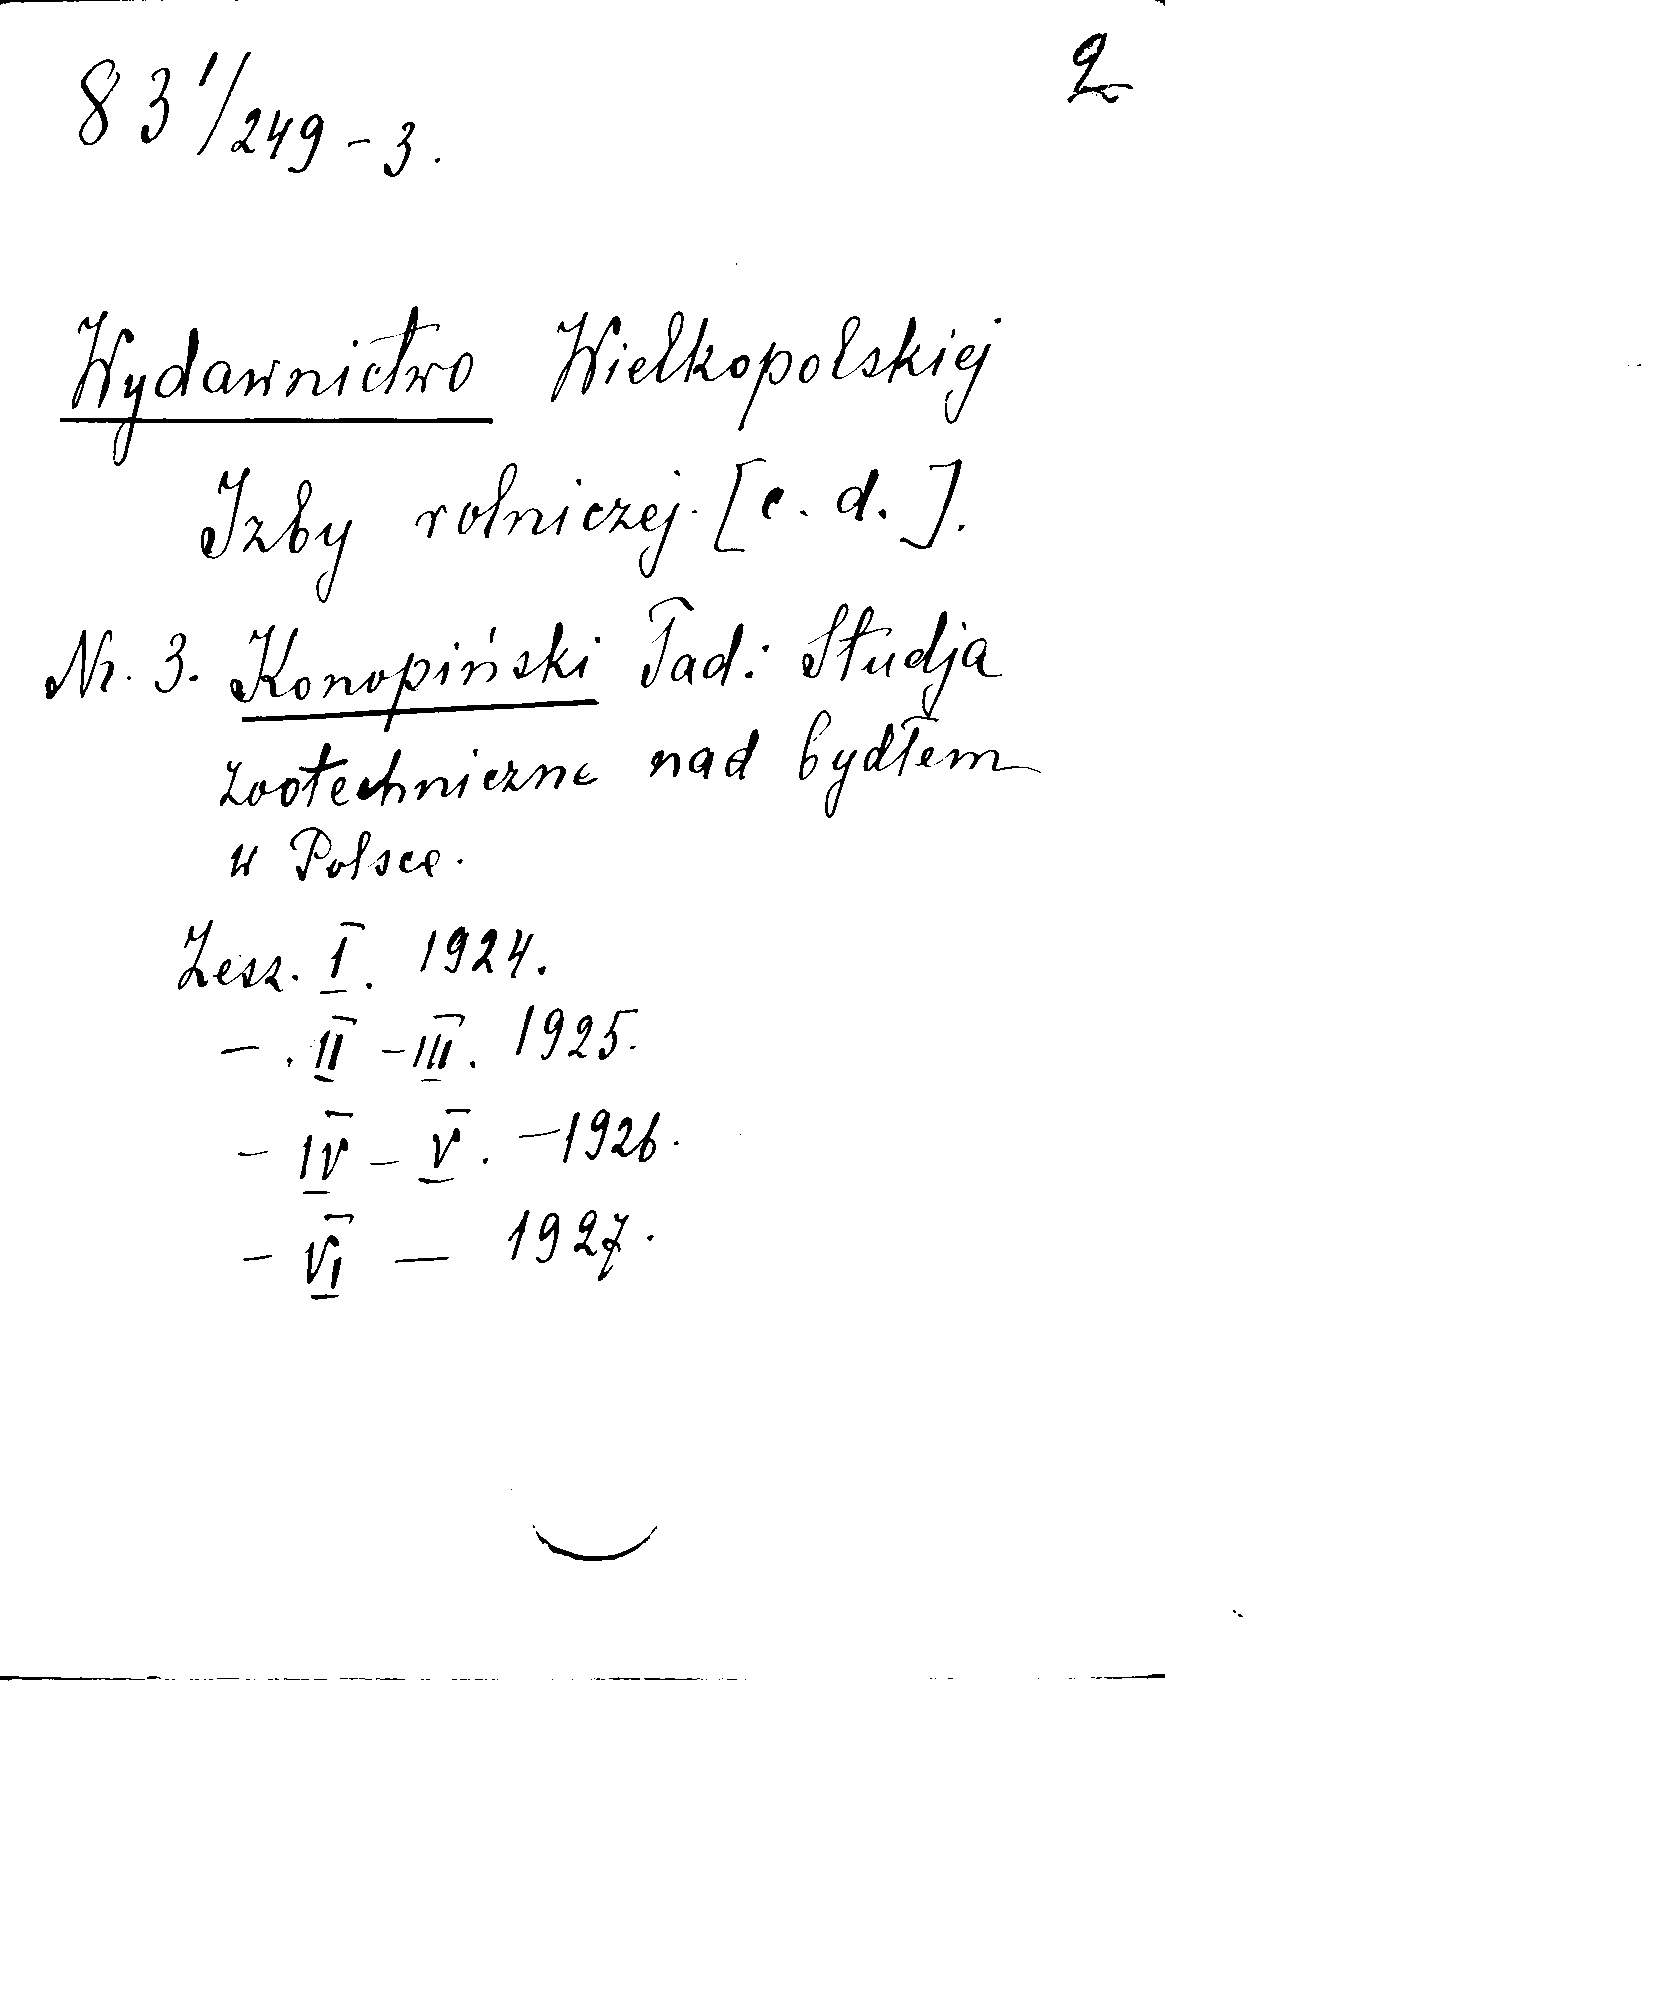 83 1/249-3.
2
Wydawnictwo Wielkopolskiej
Izby rolniczej. [c. d.].
Nr. 3. Konopiński Tad: Studja
zootechniczne nad bydłem
w Polsce.
Zesz. I. 1924.
- . II - III. 1925.
- IV - V. - 1926.
- VI - 1927.